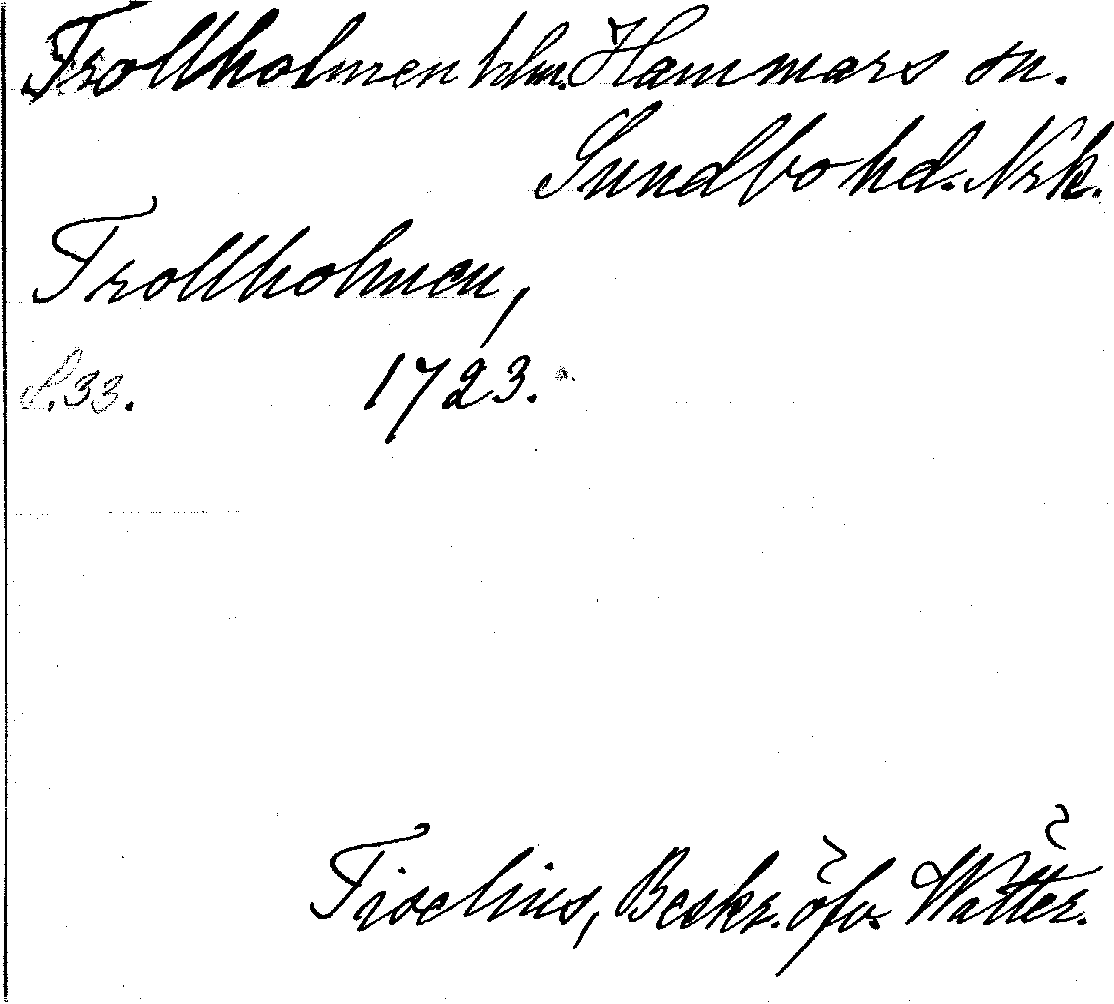 Trollholmen hlm. Hammars sn.
Sundbo hd. Nrk.
Trollholmen,
S.33. 1723.
Tiselius, Beskr. öfv. Wätter.